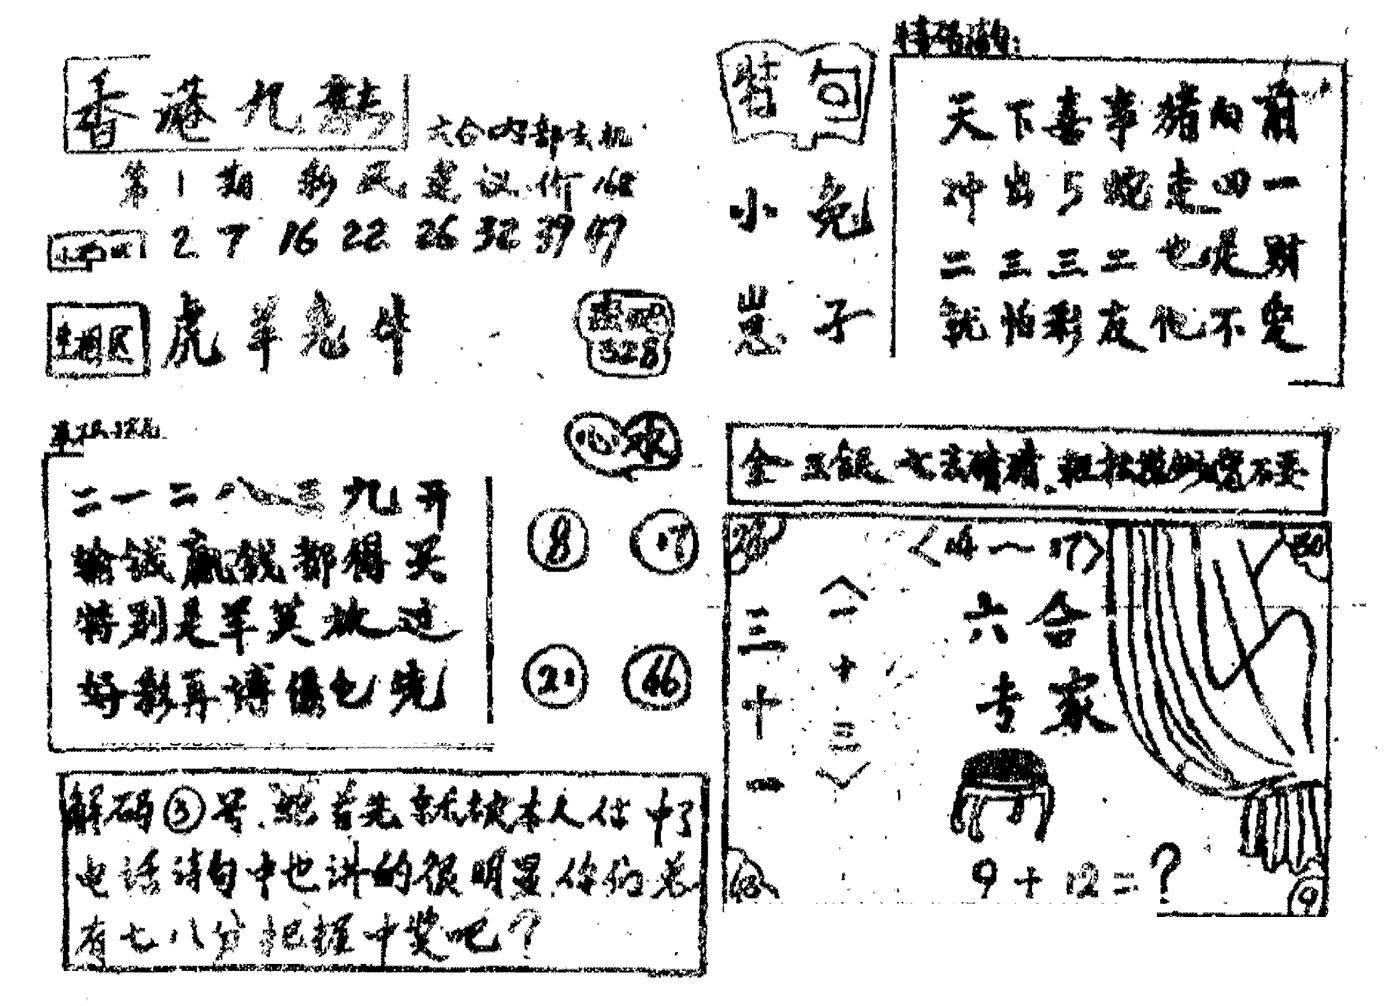 香港九龍
六合内部玄机
第1期 彩民建议价168
2 7 16 22 26 32 39 47
生相区 虎羊兔牛
328
心水
8 17
21 46
二一二八三九开
输钱赢钱都得买
特别是羊莫放过
好彩再博
解码③号 首先就被本人估中了
电话诗句中也讲的很明显 你们总
有七八分把握中奖吧？
特句
小兔
崽子
特码诗句：
天下喜事猪向前
冲出5蛇走四一
二三三二也是财
就怕彩友他不爱
金五银七玄
<14一17>
28 30
六合
专家
三十一
<一十三>
9+12=？
9